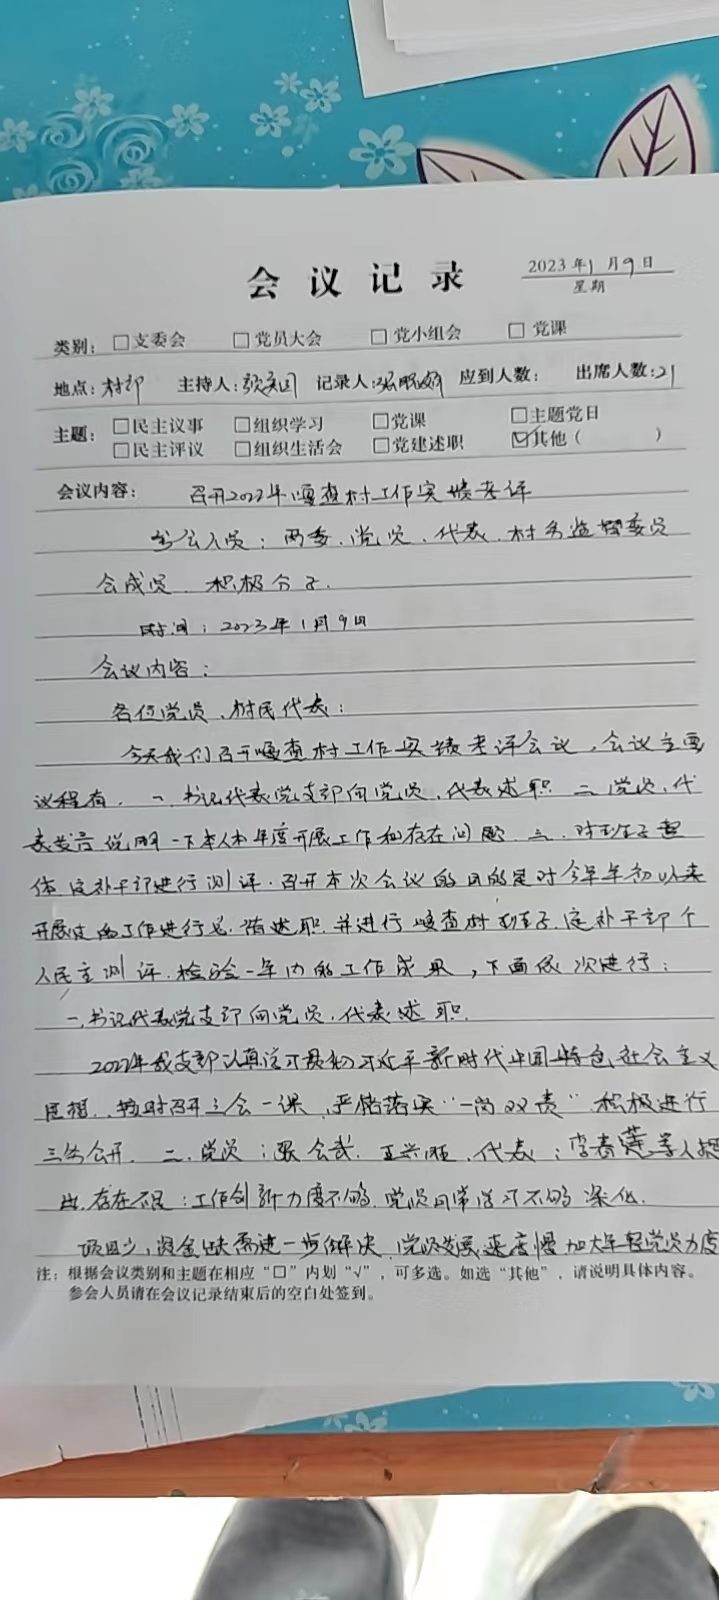 会议记录
2023年1月9日
星期
类别：□支委会 □党员大会 □党小组会 □党课
地点：村部 主持人： 记录人： 应到人数： 出席人数：21
主题：□民主议事 □组织学习 □党课 □主题党日
□民主评议 □组织生活会 □党建述职 ☑其他（ ）
会议内容： 召开2022年嘎查村工作实绩考评
参会人员：两委、党员、代表、村务监督委员
会成员、积极分子.
时间：2023年1月9日
会议内容：
各位党员、村民代表：
今天我们召开嘎查村工作实绩考评会议，会议主要
议程有、一、书记代表党支部向党员、代表述职 二、党员、代
表发言说明一下本人本年度开展工作和存在问题 三、对班子整
体 定补干部进行测评.召开本次会议的目的是对今年年初以来
开展过的工作进行总 述职 并进行嘎查村班子.定补干部个
人民主测评.检验一年内的工作成果，下面依次进行：
一、书记代表党支部向党员.代表述职.
2022年我支部认真学习贯彻习近平新时代中国特色社会主义
思想、按时召开三会一课、严格落实“一岗双责” 积极进行
三务公开. 二、党员： 代表：李春莲等人提
出.存在不足：工作创新力度不够.党员日常学习不够深化.
项目少，资金缺需进一步解决.党员发展速度慢加大年轻党员力度
注：根据会议类别和主题在相应“□”内划“√”，可多选。如选“其他”，请说明具体内容。
参会人员请在会议记录结束后的空白处签到。